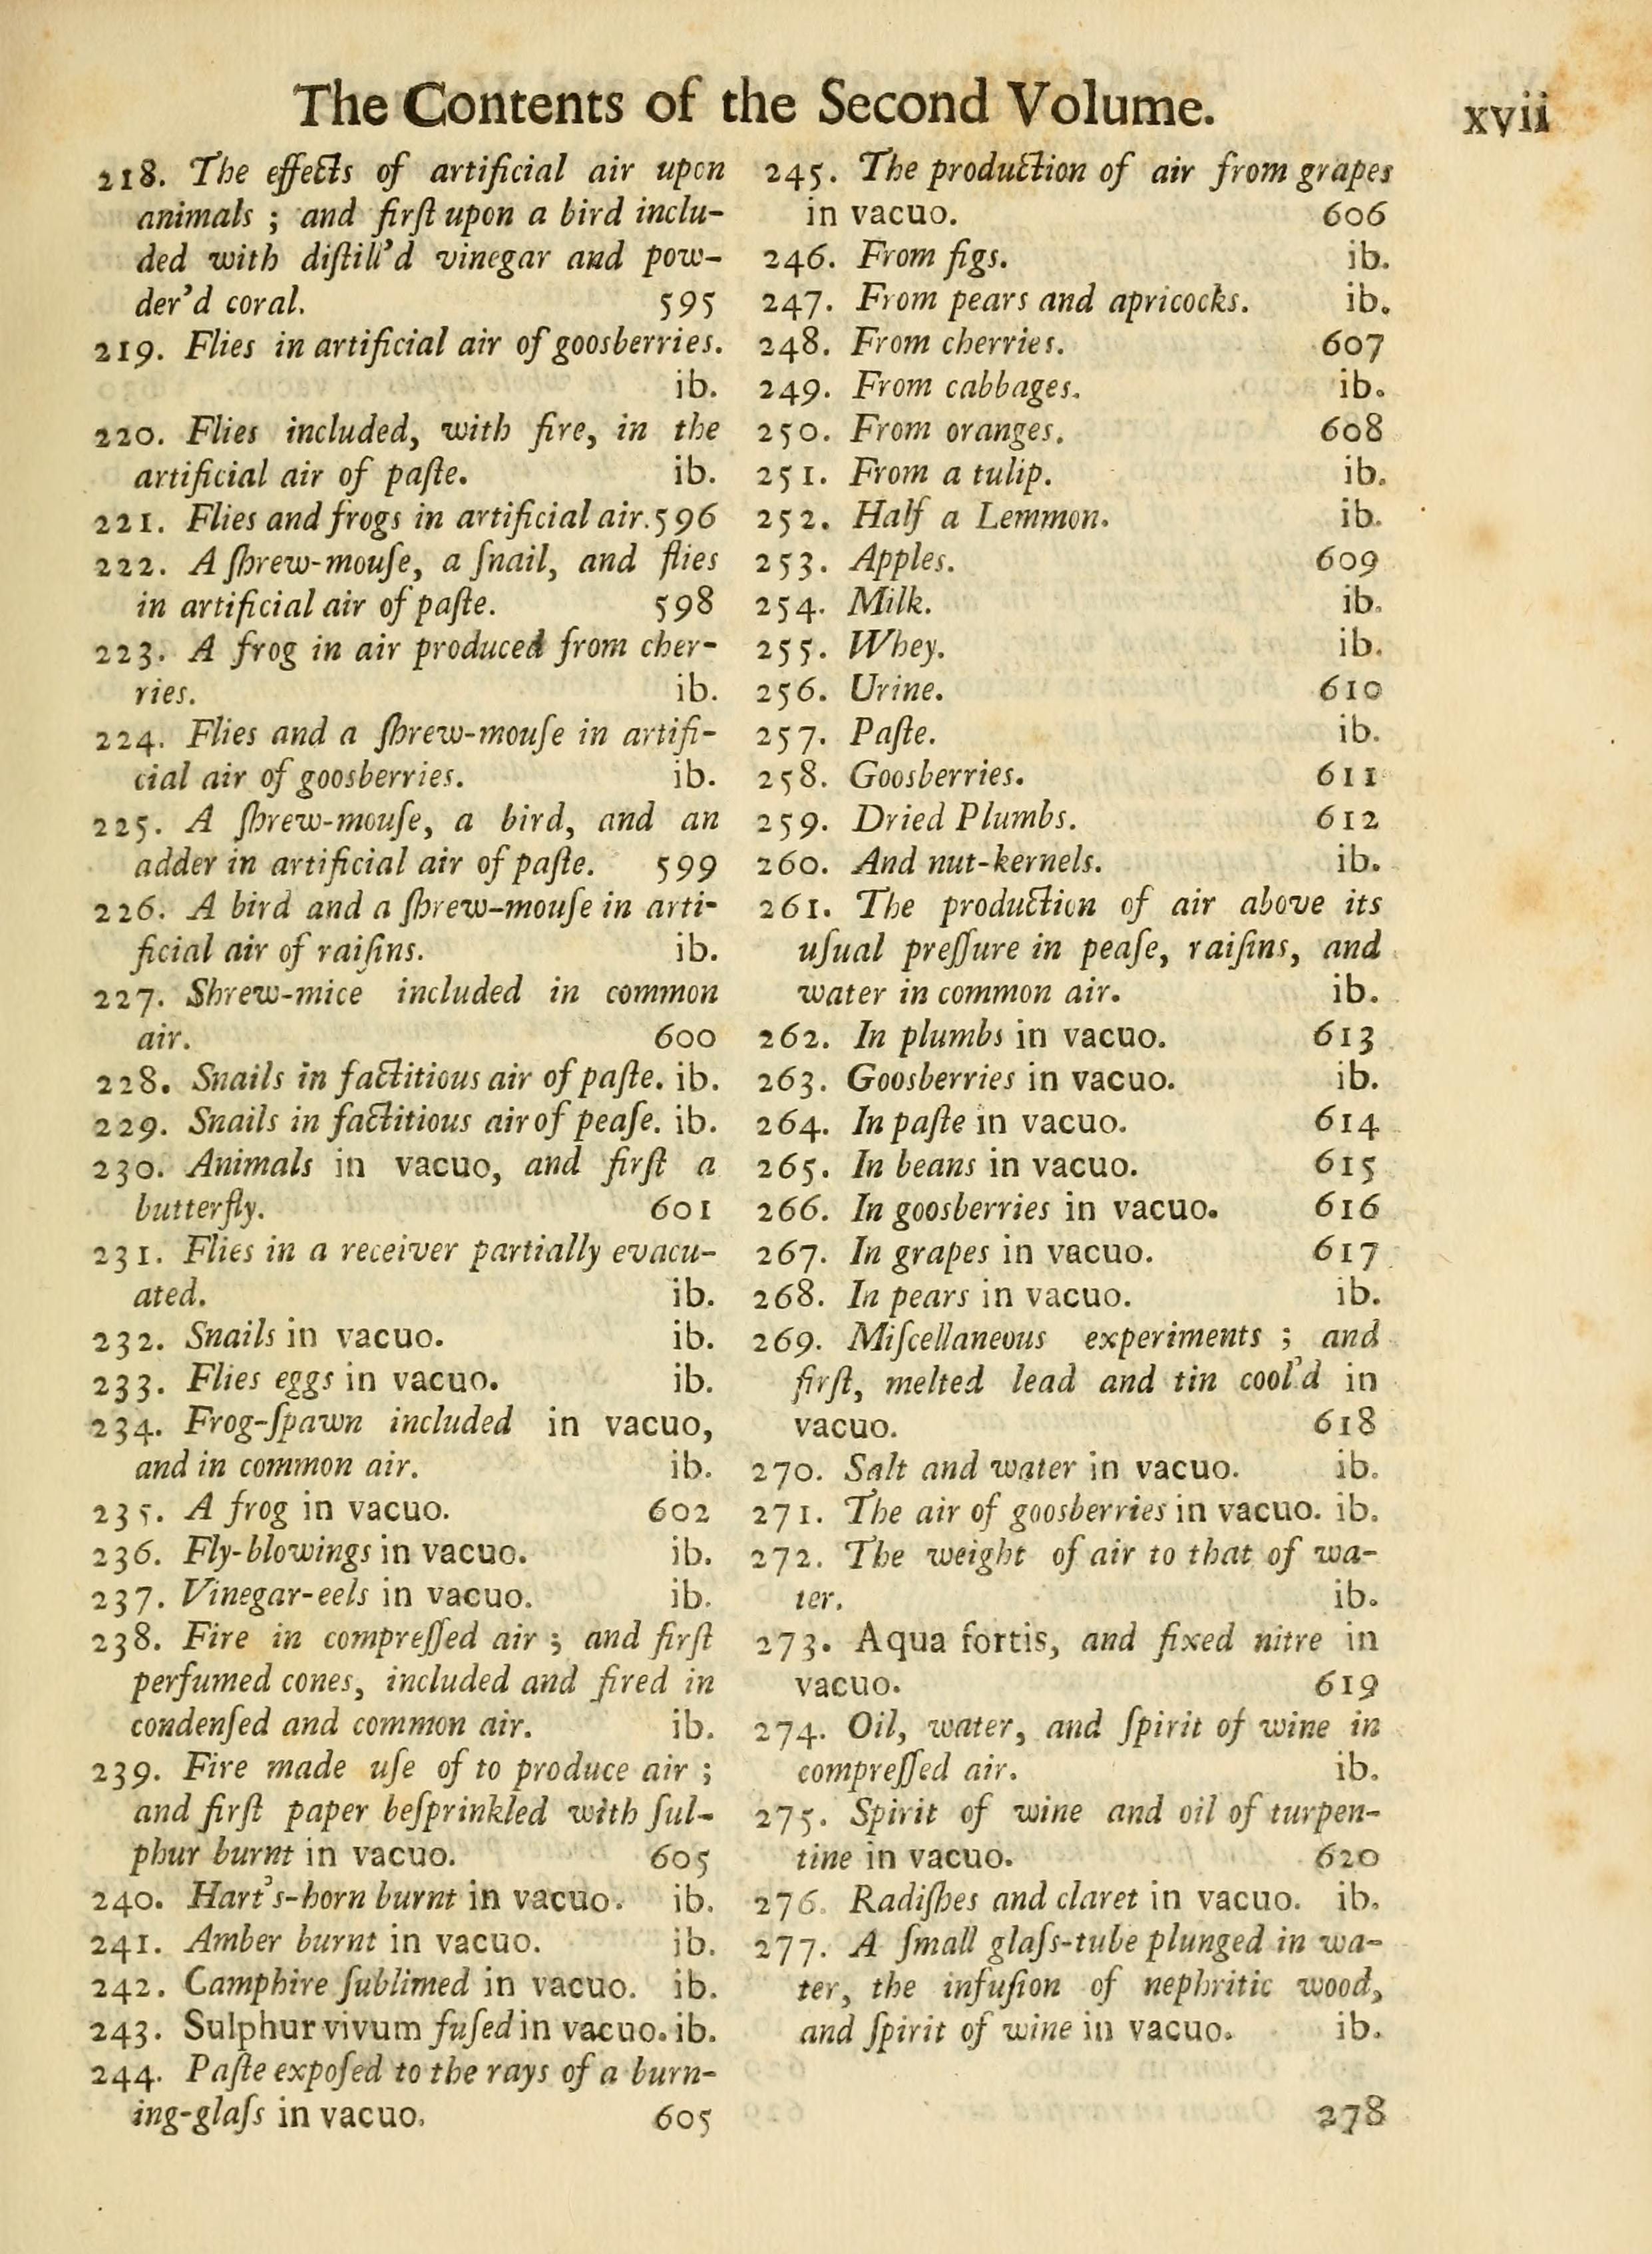 The Contents of the Second Volume.
xvii
218. The effects of artificial air upon
animals ; and firſt upon a bird inclu-
ded with diſtill'd vinegar and pow-
der'd coral. 595
219. Flies in artificial air of goosberries.
ib.
220. Flies included, with fire, in the
artificial air of paſte. ib.
221. Flies and frogs in artificial air. 596
222. A ſhrew-mouſe, a ſnail, and flies
in artificial air of paſte. 598
223. A frog in air produced from cher-
ries. ib.
224. Flies and a ſhrew-mouſe in artifi-
cial air of goosberries. ib.
225. A ſhrew-mouſe, a bird, and an
adder in artificial air of paſte. 599
226. A bird and a ſhrew-mouſe in arti-
ficial air of raiſins. ib.
227. Shrew-mice included in common
air. 600
228. Snails in factitious air of paſte. ib.
229. Snails in factitious air of peaſe. ib.
230. Animals in vacuo, and firſt a
butterfly. 601
231. Flies in a receiver partially evacu-
ated. ib.
232. Snails in vacuo. ib.
233. Flies eggs in vacuo. ib.
234. Frog-ſpawn included in vacuo,
and in common air. ib.
235. A frog in vacuo. 602
236. Fly-blowings in vacuo. ib.
237. Vinegar-eels in vacuo. ib.
238. Fire in compreſſed air ; and firſt
perfumed cones, included and fired in
condenſed and common air. ib.
239. Fire made uſe of to produce air ;
and firſt paper beſprinkled with ſul-
phur burnt in vacuo. 605
240. Hart's-horn burnt in vacuo. ib.
241. Amber burnt in vacuo. ib.
242. Camphire ſublimed in vacuo. ib.
243. Sulphur vivum fuſed in vacuo. ib.
244. Paſte expoſed to the rays of a burn-
ing-glaſs in vacuo. 605
245. The production of air from grapes
in vacuo. 606
246. From figs. ib.
247. From pears and apricocks. ib.
248. From cherries. 607
249. From cabbages. ib.
250. From oranges. 608
251. From a tulip. ib.
252. Half a Lemmon. ib.
253. Apples. 609
254. Milk. ib.
255. Whey. ib.
256. Urine. 610
257. Paſte. ib.
258. Goosberries. 611
259. Dried Plumbs. 612
260. And nut-kernels. ib.
261. The production of air above its
uſual preſſure in peaſe, raiſins, and
water in common air. ib.
262. In plumbs in vacuo. 613
263. Goosberries in vacuo. ib.
264. In paſte in vacuo. 614
265. In beans in vacuo. 615
266. In goosberries in vacuo. 616
267. In grapes in vacuo. 617
268. In pears in vacuo. ib.
269. Miſcellaneous experiments ; and
firſt, melted lead and tin cool'd in
vacuo. 618
270. Salt and water in vacuo. ib.
271. The air of goosberries in vacuo. ib.
272. The weight of air to that of wa-
ter. ib.
273. Aqua fortis, and fixed nitre in
vacuo. 619
274. Oil, water, and ſpirit of wine in
compreſſed air. ib.
275. Spirit of wine and oil of turpen-
tine in vacuo. 620
276. Radiſhes and claret in vacuo. ib.
277. A ſmall glaſs-tube plunged in wa-
ter, the infuſion of nephritic wood,
and ſpirit of wine in vacuo. ib.
278